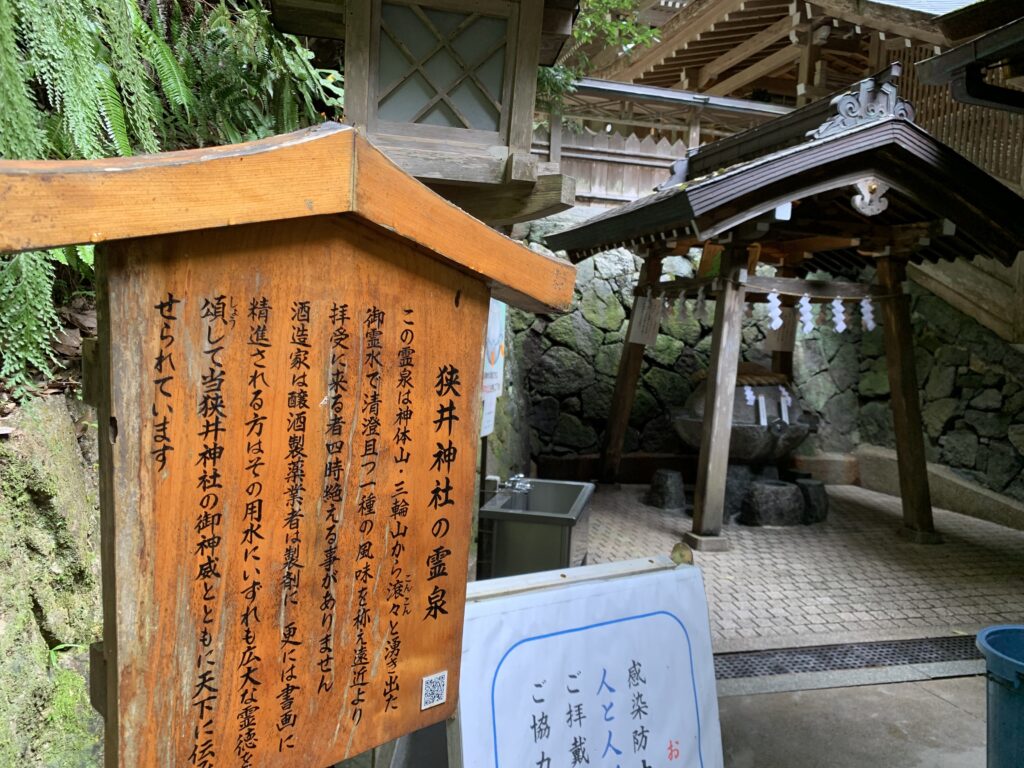 狭井神社の霊泉
この霊泉は神体山・三輪山から滾々と湧き出た
こんこん
御霊水で清澄且つ一種の風味を称え遠近より
拝受に来る者四時絶える事がありません
酒造家は醸酒製薬業者は製剤に 更には書画に
精進される方はその用水にいずれも広大な霊徳を
頌して当狭井神社の御神威とともに天下に伝
しょう
せられています
お
感染防
人と人
ご拝戴
ご協力